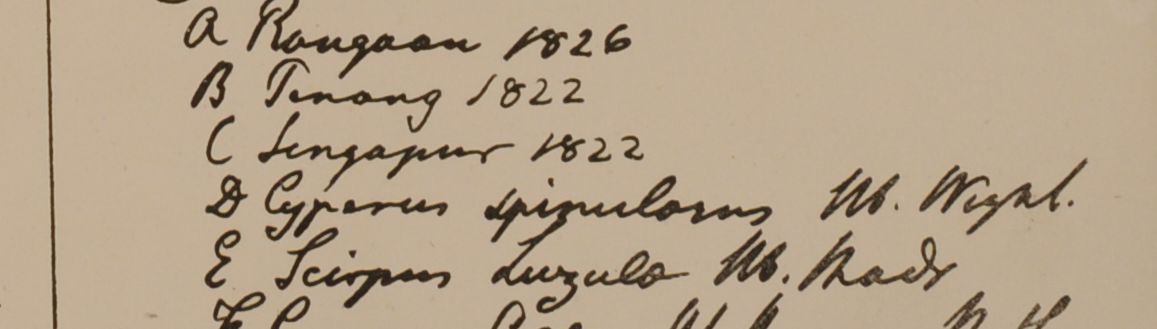 A Rangoon 1826
B Penang 1822
C Singapur 1822
D Cyperus spinulosus Hb. Wight.
E Scirpus Luzula Hb. Madr